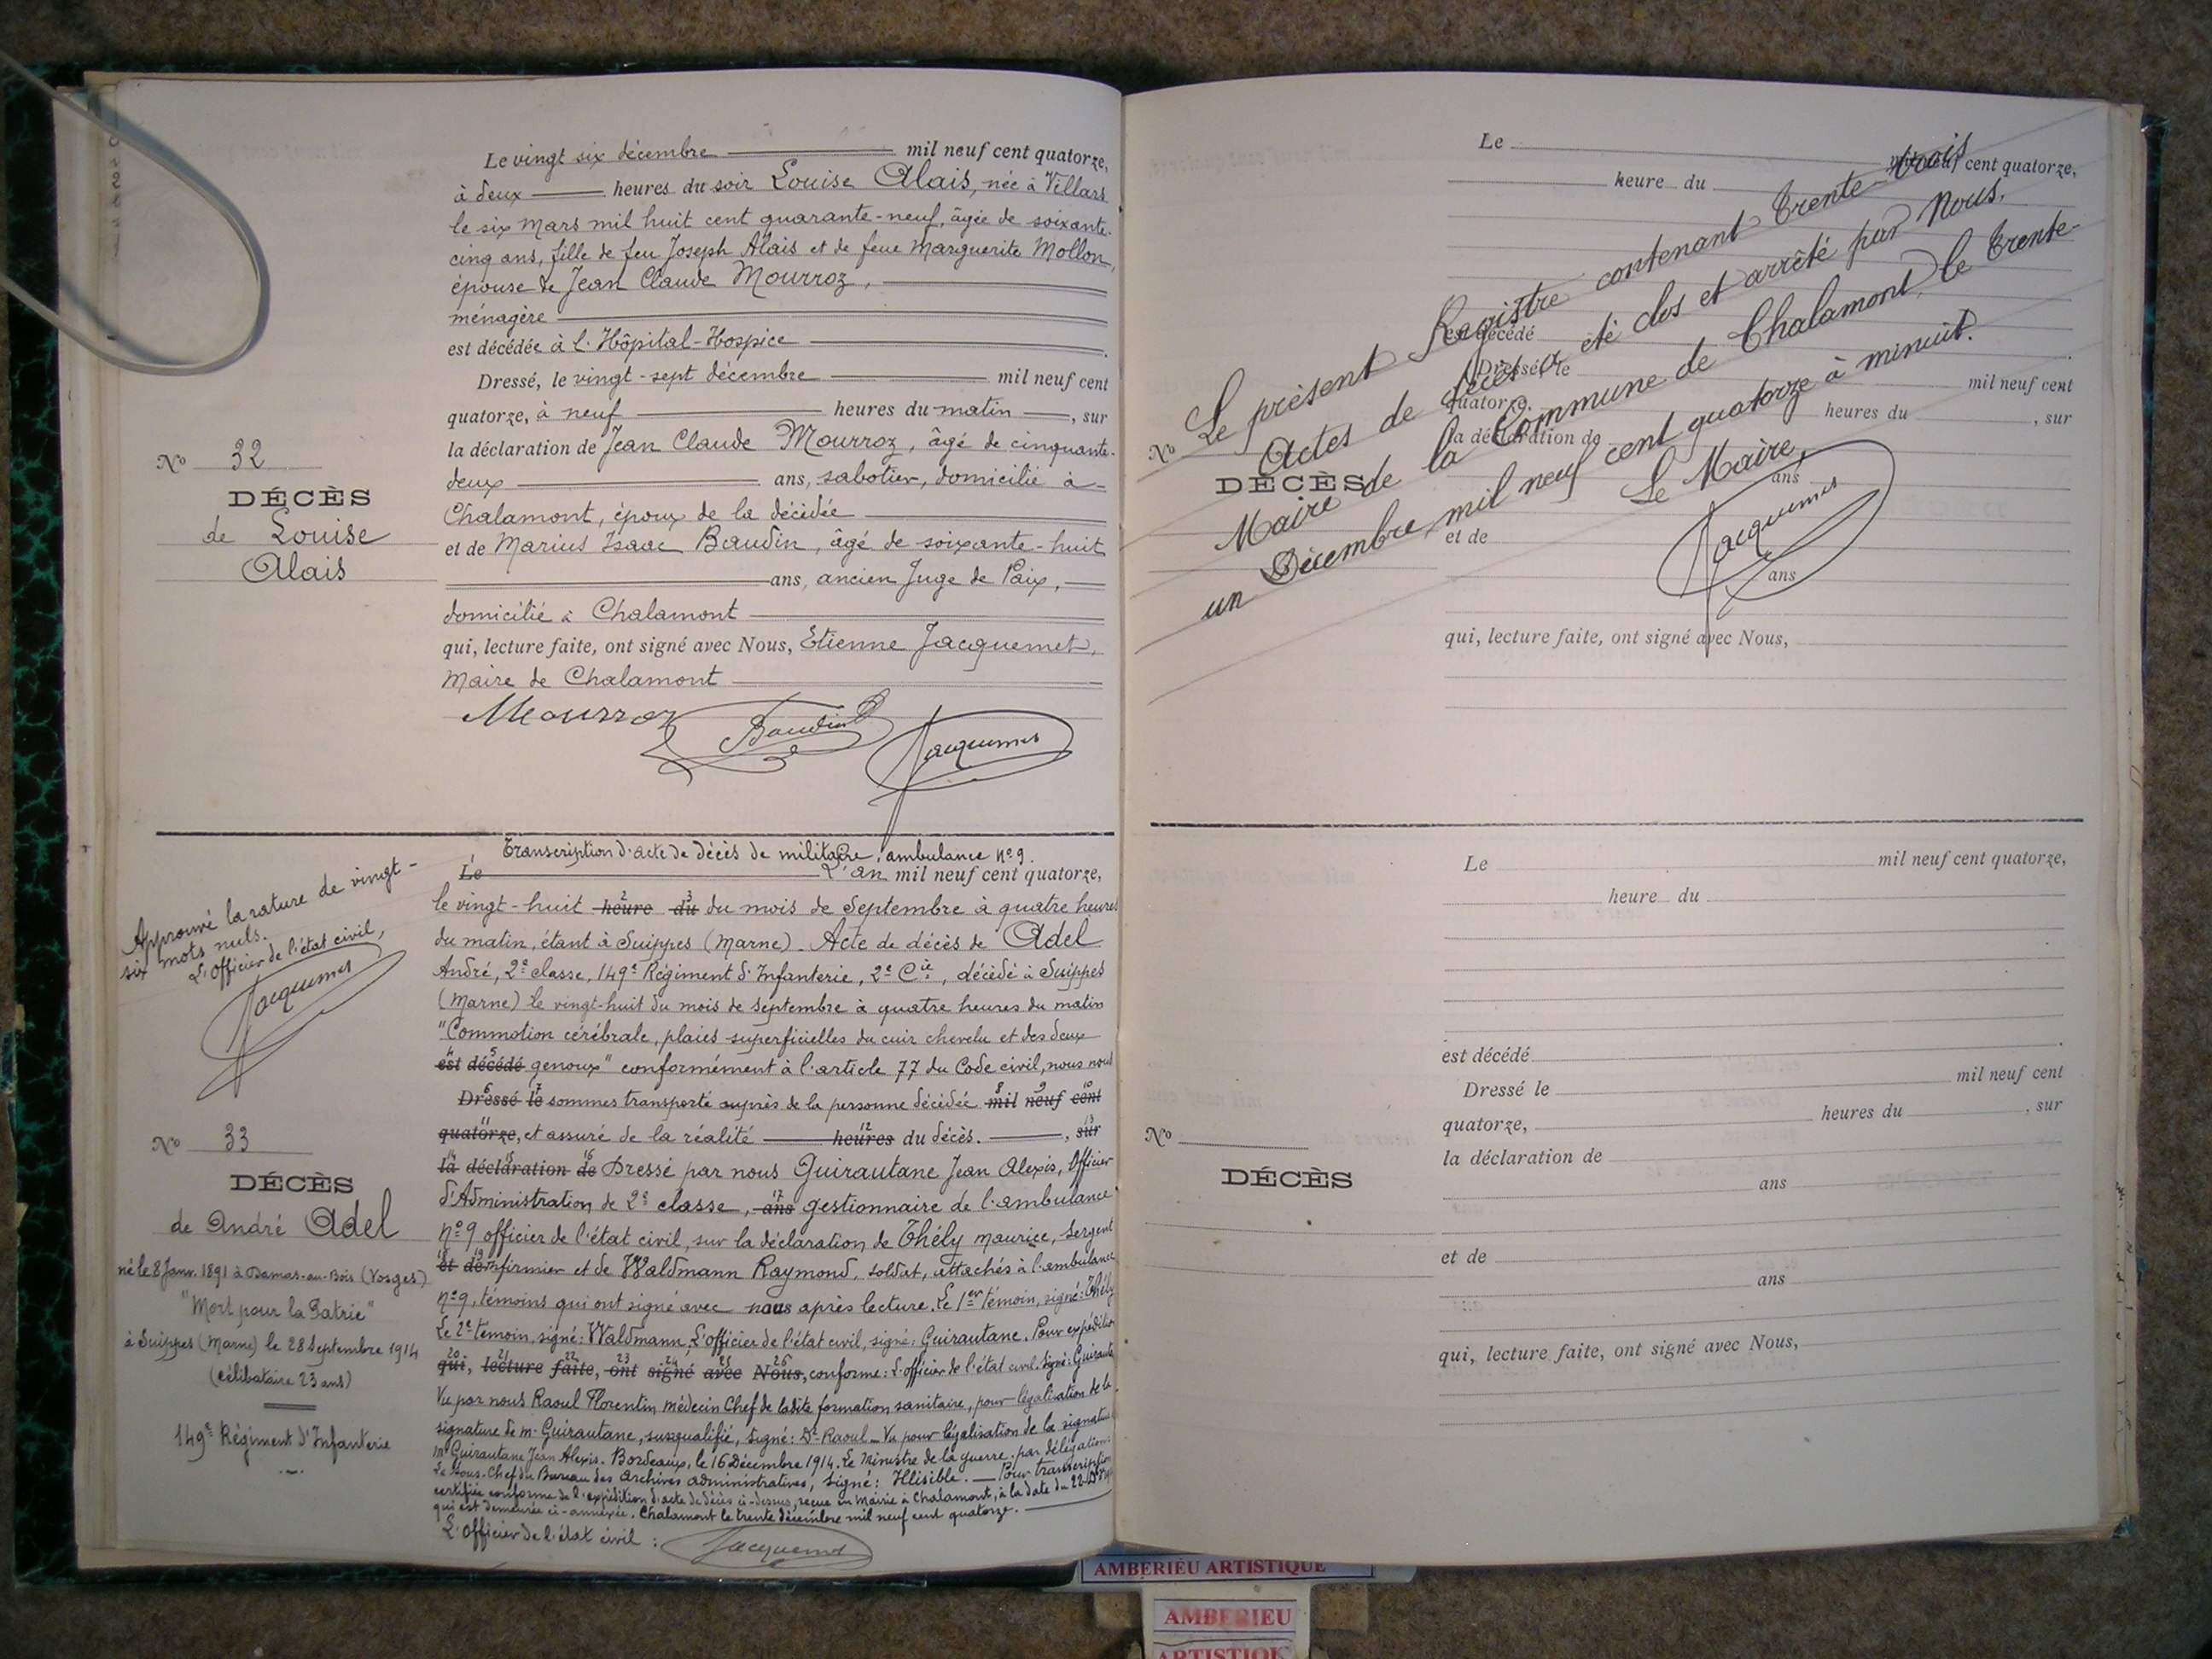 Le vingt six décembre mil neuf cent quatorze,
à deux heures du soir Louise Alais, née à Villars
le six Mars mil huit cent quarante-neuf, âgée de soixante-
cinq ans, fille de feu Joseph Alais et de feue Marguerite Mollon,
épouse de Jean Claude Mourroz,
ménagère
est décédée à l'Hôpital-Hospice
Dressé, le vingt-sept décembre mil neuf cent
quatorze, à neuf heures du matin, sur
la déclaration de Jean Claude Mourroz, âgé de cinquante-
deux ans, sabotier, domicilié à
Chalamont, époux de la décédée
et de Marius Isaac Baudin, âgé de soixante-huit
ans, ancien Juge de Paix,
domicilié à Chalamont
qui, lecture faite, ont signé avec Nous, Etienne Jacquemet,
Maire de Chalamont
Mourroz Baudin Jacquemet
No 32
DÉCÈS
de Louise
Alais
Transcription d'acte de décès de militaire, ambulance No 9.
Le L'an mil neuf cent quatorze,
le vingt-huit heure du du mois de Septembre à quatre heures
du matin, étant à Suippes (Marne) Acte de décès de Adel
André, 2e classe, 149e Régiment d'Infanterie, 2e Cie, décédé à Suippes
(Marne) le vingt-huit du mois de septembre à quatre heures du matin
"Commotion cérébrale, plaies superficielles du cuir chevelu et des deux
est décédé genoux" conformément à l'article 77 du Code civil, nous nous
Dressé le sommes transporté auprès de la personne décédée mil neuf cent
quatorze, et assuré de la réalité heures du décès. , sur
la déclaration de Dressé par nous Guirautane Jean Alexis, Officier
d'Administration de 2e classe, ans gestionnaire de l'ambulance
No 9 officier de l'état civil, sur la déclaration de Thély Maurice, Sergent
et de infirmier et de Waldmann Raymond, soldat, attachés à l'ambulance
No 9, témoins qui ont signé avec nous après lecture. Le 1er témoin, signé: Thély
Le 2e témoin, signé: Waldmann, L'officier de l'état civil, signé: Guirautane. Pour expédition
qui, lecture faite, ont signé avec Nous, conforme: L'officier de l'état civil, signé: Guirautane
Vu par nous Raoul Florentin médecin Chef de ladite formation sanitaire, pour légalisation de la
signature de Mr Guirautane, susqualifié, Signé: Dr Raoul - Vu pour légalisation de la signature
Mr Guirautane Jean Alexis. Bordeaux, le 16 Décembre 1914. Le Ministre de la guerre. par délégation:
Le Sous-Chef du Bureau des Archives administratives, signé: Illisible. — Pour transcription
certifiée conforme de l'expédition d'acte de décès ci-dessus, reçue en Mairie à Chalamont, à la date du 22
qui est demeurée ci-annexée. Chalamont le trente décembre mil neuf cent quatorze.
L'officier de l'état civil : Jacquemet
Approuvé la rature de vingt-
six mots nuls.
L'officier de l'état civil,
Jacquemet
No 33
DÉCÈS
de André Adel
né le 8 Janv. 1891 à Damas-au-Bois (Vosges)
"Mort pour la Patrie"
à Suippes (Marne) le 28 Septembre 1914
(célibataire 23 ans)
149e Régiment d'Infanterie
Le mil neuf cent quatorze,
heure du
est décédé
Dressé, le mil neuf cent
quatorze, heures du , sur
la déclaration de
ans
et de
ans
qui, lecture faite, ont signé avec Nous,
No
DÉCÈS
Le présent Registre contenant trente-trois
Actes de décès a été clos et arrêté par Nous,
Maire de la Commune de Chalamont, le trente-
un Décembre, mil neuf cent quatorze à minuit.
Le Maire,
Jacquemet
Le mil neuf cent quatorze,
heure du
est décédé
Dressé le mil neuf cent
quatorze, heures du , sur
la déclaration de
ans
et de
ans
qui, lecture faite, ont signé avec Nous,
No
DÉCÈS
AMBERIEU ARTISTIQUE
AMBERIEU
ARTISTIQUE